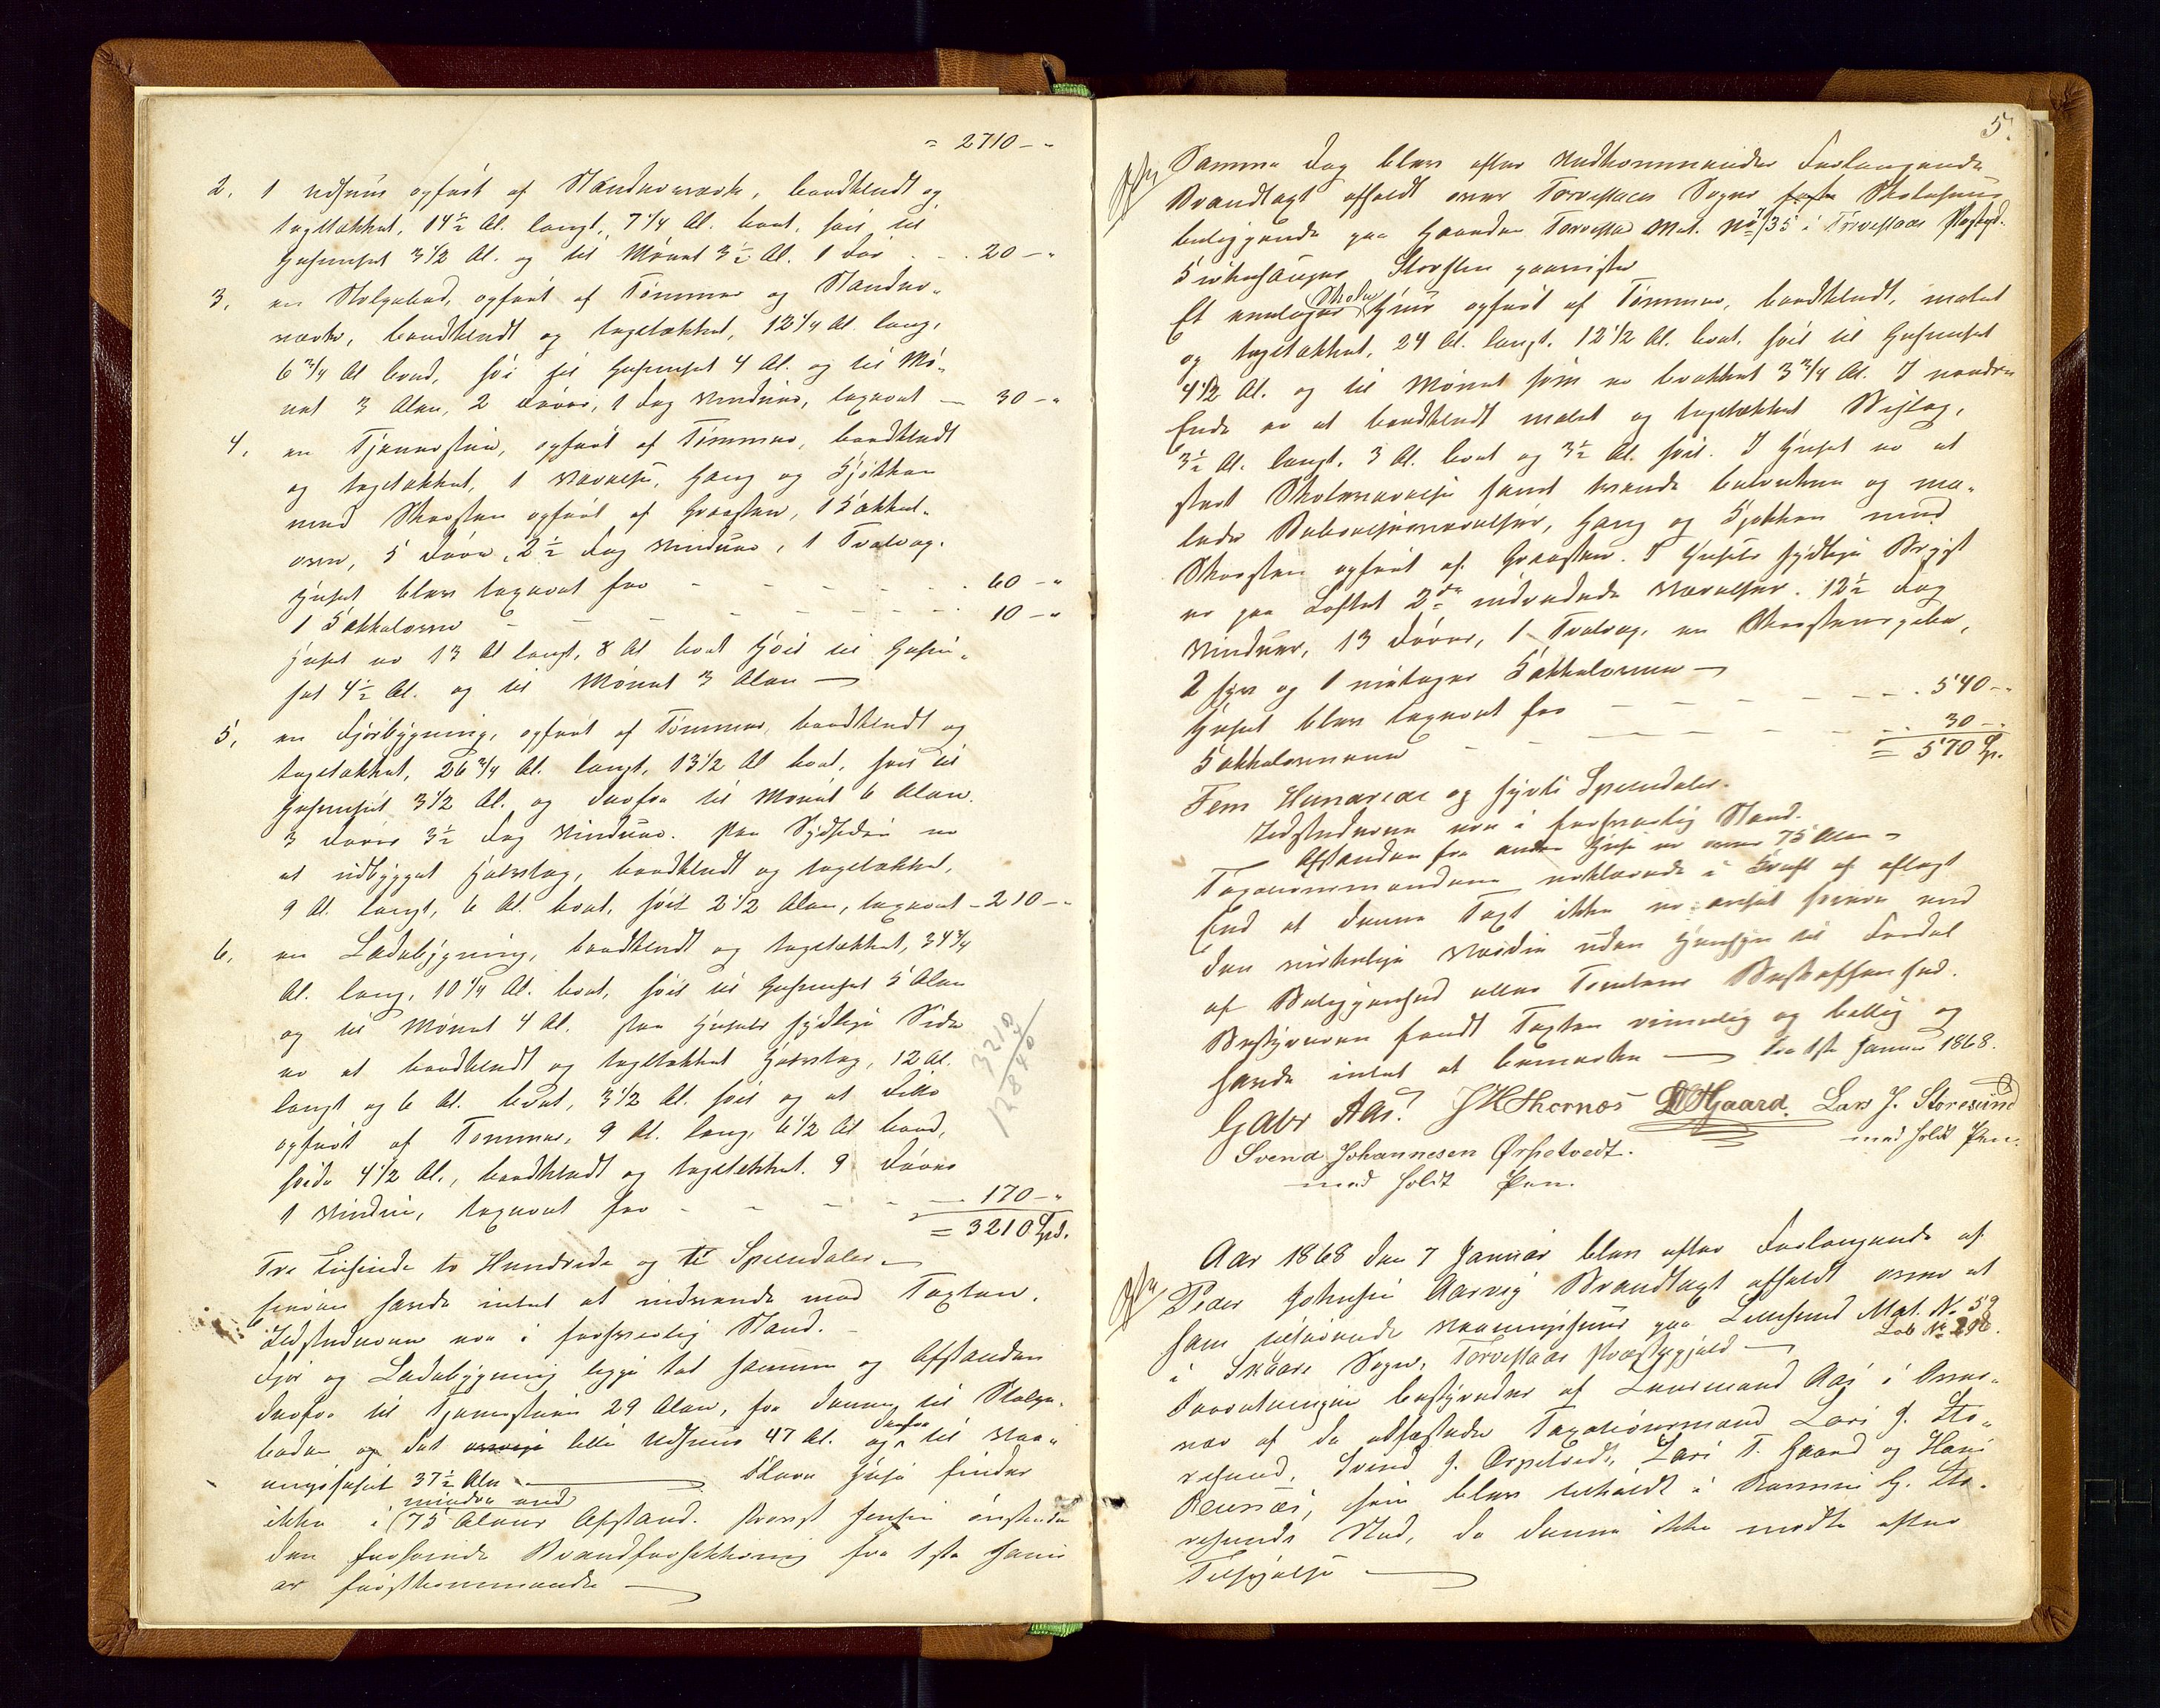 = 2710 - "
2. 1 Udhuus opført af Stænderværk, bordklædt og
tegltækket, 14½ Al. langt, 7 1/4 Al. bredt, høit til
Gesimset 3 1/2 Al. og til Mønet 3½ Al. 1 Dør - 20 - "
3. en Stolpebod, opført af Tømmer og Stænder-
værk, bordklædt og tegltækket, 12 1/4 Al. lang,
6 3/4 Al bred, høi til Gesimset 4 Al. og til Mø-
net 3 Alen, 2 Døre, 1 Fag Vinduer, taxeret - 30 - "
4. en Tjenerstue, opført af Tømmer, bordklædt
og tegltækket, 1 Værelse, Gang og Kjøkken
med Skorsten opført af Graasten, 1 Kakkel-
ovn, 5 Døre, 2½ Fag Vinduer, 1 Trælvag.
Huset blev taxeret for - - - 60 - "
1 Kakkelovn - - - 10 - "
Huset er 13 Al langt, 8 Al bredt høit til Gesim-
set 4½ Al. og til Mønet 3 Alen -
5. en Fjøsbygning, opført af Tømmer, bordklædt og
tegltækket, 26 3/4 Al. langt, 13 1/2 Al bredt, høit til
Gesimset 3 1/2 Al. og derfra til Mønet 6 Alen.
3 Døre 3½ Fag Vinduer. Paa Sydsiden er
et udbygget Halvtag, bordklædt og tegltækket,
9 Al. langt, 6 Al. bredt, høit 2 1/2 Alen, taxeret - 210 - "
6. en Ladebygning, bordklædt og tegltækket, 34 3/4
Al. lang, 10 1/4 Al. bredt, høit til Gesimset 5 Alen
og til Mønet 4 Al. Paa Husets sydlige Side
er et bordklædt og tegltækket Halvtag, 12 Al.
langt og 6 Al. bredt, 3 1/2 Al. høit og et Ditto
opført af Tømmer, 9 Al. lang, 6 1/2 Al bred,
høide 4 1/2 Al., bordklædt og tegltækket. 9 Døre
1 Vindue, taxeret for - - - 170 - "
= 3210 Spd.
3210
4
12840
Tre Tusinde to Hundrede og ti Speciedaler -
Eieren havde intet at indvende mod Taxten.
Ildstederne var i forsvarlig Stand. -
Fjøs og Ladebygning ligge tæt sammen og Afstanden
derfra til Tjenerstuen 29 Alen, fra denne til Stolpe-
boden og det lille Udhuus 47 Al. og derfra til Vaa-
ningshuset 37½ Alen - Flere Huse findes
ikke i mindre end 75 Alens Afstand. Provst Jensen ønskede
den forhøiede Brandforsikkring fra 1ste Janu
ar førstkommende -
5.
Samme Dag blev efter Vedkommendes Forlangende
Brandtaxt afholdt over Torvestad Sogns faste Skolehuus
beliggende paa Gaarden Torvestad Mat. No 35 i Torvestads Præstegd.
Kirkesanger Storsten paaviste
Et enetages Skolehuus opført af Tømmer, bordklædt, malet
og tegltækket, 24 Al. langt, 12 1/2 Al. bredt, høit til Gesimset
4 1/2 Al. og til Mønet som er brækket 3 3/4 Al. I nordre
Ende er et bordklædt malet og tegltækket Bislag,
3½ Al. langt, 3 Al. bredt og 3½ Al. høit. I Huset er et
stort Skoleværelse samt tvende betrukne og ma-
lede Beboelsesværelser, Gang og Kjøkken med
Skorsten opført af Graasten. I Husets sydlige Bryst
er paa Loftet 2de indredede Værelser. 12½ Fag
Vinduer, 13 Døre, 1 Trælvag, en Skorstenspibe,
2 fyr og 1 enetages Kakkelovne -
Huset blev taxeret for - - - 540 - "
Kakkelovnene - - - 30 - "
= 570 Sp.
Fem Hundrede og syvti Speciedaler.
Ildstederne var i forsvarlig Stand.
Afstanden fra andre Huse er over 75 Alen -
Taxationsmændene erklærede i Kraft af aflagt
Eed at denne Taxt ikke er ansat høiere end
den virkelige Værdie uden Hensyn til Fordel
af Beliggenhed eller Tomtens Beskaffenhed.
Bestyreren fandt Taxten rimelig og billig og
havde intet at bemærke - Fra 1ste Januar 1868.
Gabr Aas. J H Thornæs L T Gaard. Lars J. Storesund
Svend Johannesen Ørpetvedt. med holdt Pen.
med holdt Pen.
Aar 1868 den 7 Januar blev efter Forlangende af
Peder Johnsen Aarvig Brandtaxt afholdt over et
ham tilhørende Vaaningshuus paa Lillesund Mat. No 59
Løb No 298.
i Skaare Sogn, Torvestads Præstegjeld -
Forretningen bestyredes af Lensmand Aas i Over-
vær af de edfæstede Taxationsmænd Lars J. Sto-
resund, Svend J. Ørpetvedt, Lars T. Gaard og Hans
Reinæs, som blev tilkaldt i Rasmus G. Sto-
resunds Sted, da denne ikke mødte efter
Tilsigelse -